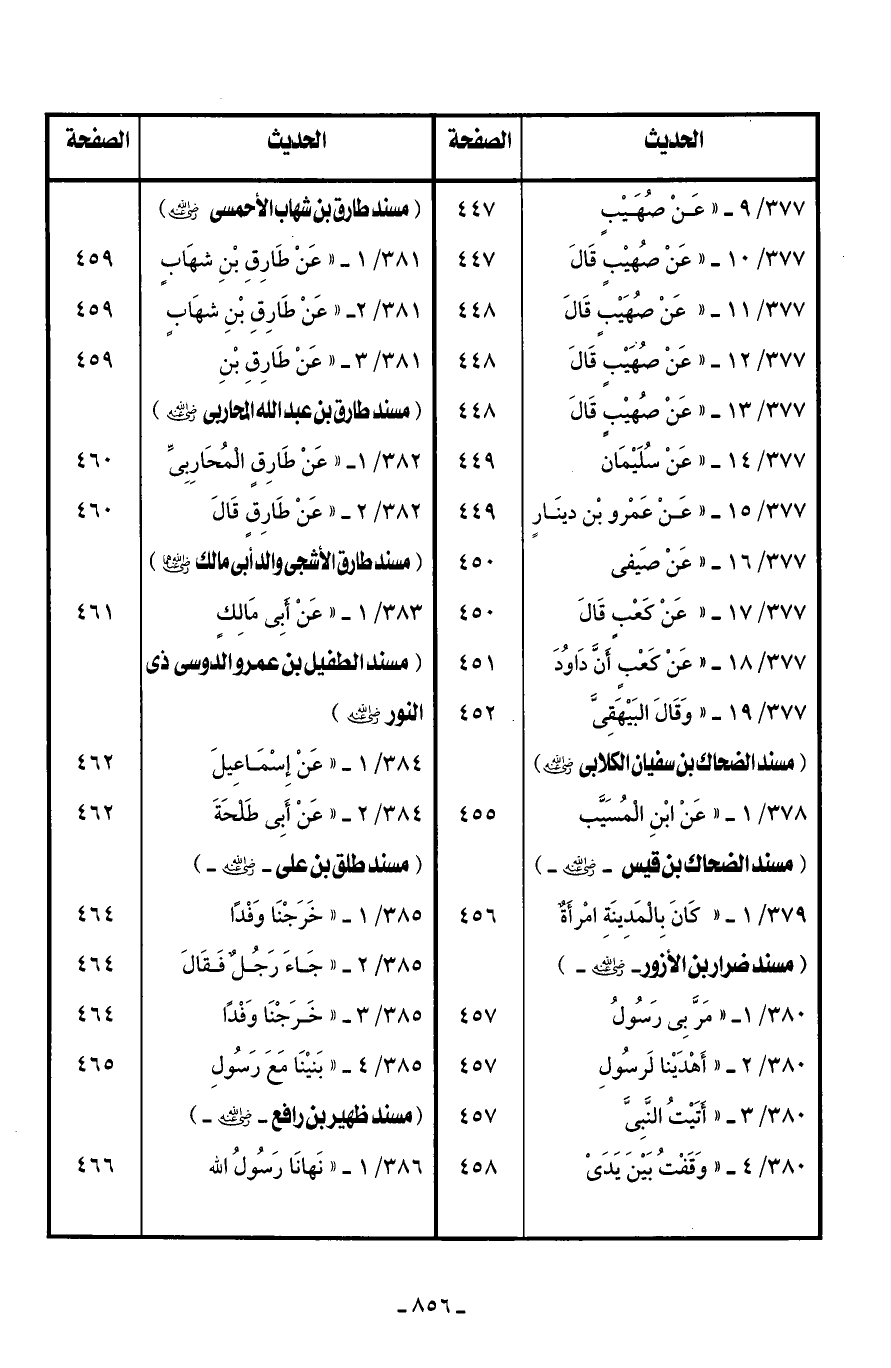 الحديث الصفحة
٣٧٧/ ٩ ـ « عَـنْ صُهَـيْبٍ ٤٤٧
٣٧٧/ ١٠ ـ « عَنْ صُهَيْبٍ قَالَ ٤٤٧
٣٧٧/ ١١ ـ « عَنْ صُهَيْبٍ قَالَ ٤٤٨
٣٧٧/ ١٢ ـ « عَنْ صُهَيْبٍ قَالَ ٤٤٨
٣٧٧/ ١٣ ـ « عَنْ صُهَيْبٍ قَالَ ٤٤٨
٣٧٧/ ١٤ ـ « عَنْ سُلَيْمَان ٤٤٩
٣٧٧/ ١٥ ـ « عَـنْ عَمْرو بْن دينَـارٍ ٤٤٩
٣٧٧/ ١٦ ـ « عَنْ صَيَفى ٤٥٠
٣٧٧/ ١٧ ـ « عَنْ كَعْبٍ قَالَ ٤٥٠
٣٧٧/ ١٨ ـ « عَنْ كَعْبٍ أَنَّ دَاوُدَ ٤٥١
٣٧٧/ ١٩ ـ « وَقَالَ البَيْهَقِىَّ ٤٥٢
( مسند الضحاك بن سفيان الكلابى رضي الله عنه )
٣٧٨/ ١ ـ « عَنْ ابْنِ الْمُسَيَّب ٤٥٥
( مسند الضحاك بن قيس ـ رضي الله عنه ـ )
٣٧٩/ ١ ـ « كَانَ بِالْمَدِينَةِ امْرأَةٌ ٤٥٦
( مسند ضرار بن الأزور ـ رضي الله عنه ـ )
٣٨٠/ ١ـ « مَرَّ بِى رَسُولُ ٤٥٧
٣٨٠/ ٢ ـ « أَهْدَيْنا لَرسُولِ ٤٥٧
٣٨٠/ ٣ ـ « أَتَيْتُ النَّبِىَّ ٤٥٧
٣٨٠/ ٤ ـ « وَقَفْتُ بَيْنَ يَدَىْ ٤٥٨
الحديث الصفحة
( مسند طارق بن شهاب الأحمسى رضي الله عنه )
٣٨١/ ١ ـ « عَنْ طَارِقِ بْنِ شهَابٍ ٤٥٩
٣٨١/ ٢ـ « عَنْ طَارِقِ بْنِ شهَابٍ ٤٥٩
٣٨١/ ٣ ـ « عَنْ طَارِقِ بْنِ ٤٥٩
( مسند طارق بن عبد الله المحاربى رضي الله عنه )
٣٨٢/ ١ـ « عَنْ طَارِقٍ الْمُحَارِبِىِّ ٤٦٠
٣٨٢/ ٢ ـ « عَنْ طَارِقٍ قَالَ ٤٦٠
( مسند طارق الأشجى والد أبى مالك رضي الله عنهما )
٣٨٣/ ١ ـ « عَنْ أَبِى مَالِكٍ ٤٦١
( مسند الطفيل بن عمرو الدوسى ذى
النور رضي الله عنه )
٣٨٤/ ١ ـ « عَنْ إِسْمَـاعِيلَ ٤٦٢
٣٨٤/ ٢ ـ « عَنْ أَبِى طَلْحَةَ ٤٦٢
( مسند طلق بن على ـ رضي الله عنه ـ )
٣٨٥/ ١ ـ « خَرَجْنَا وَفْدًا ٤٦٤
٣٨٥/ ٢ ـ « جَـاءَ رَجُـلٌ فَـقَالَ ٤٦٤
٣٨٥/ ٣ ـ « خَـرَجْنَا وَفْدًا ٤٦٤
٣٨٥/ ٤ ـ « بَنَيْنَا مَعَ رَسُولِ ٤٦٥
( مسند ظهير بن رافع ـ رضي الله عنه ـ )
٣٨٦/ ١ ـ « نَهانَا رَسُولُ الله ٤٦٦
ـ ٨٥٦ ـ